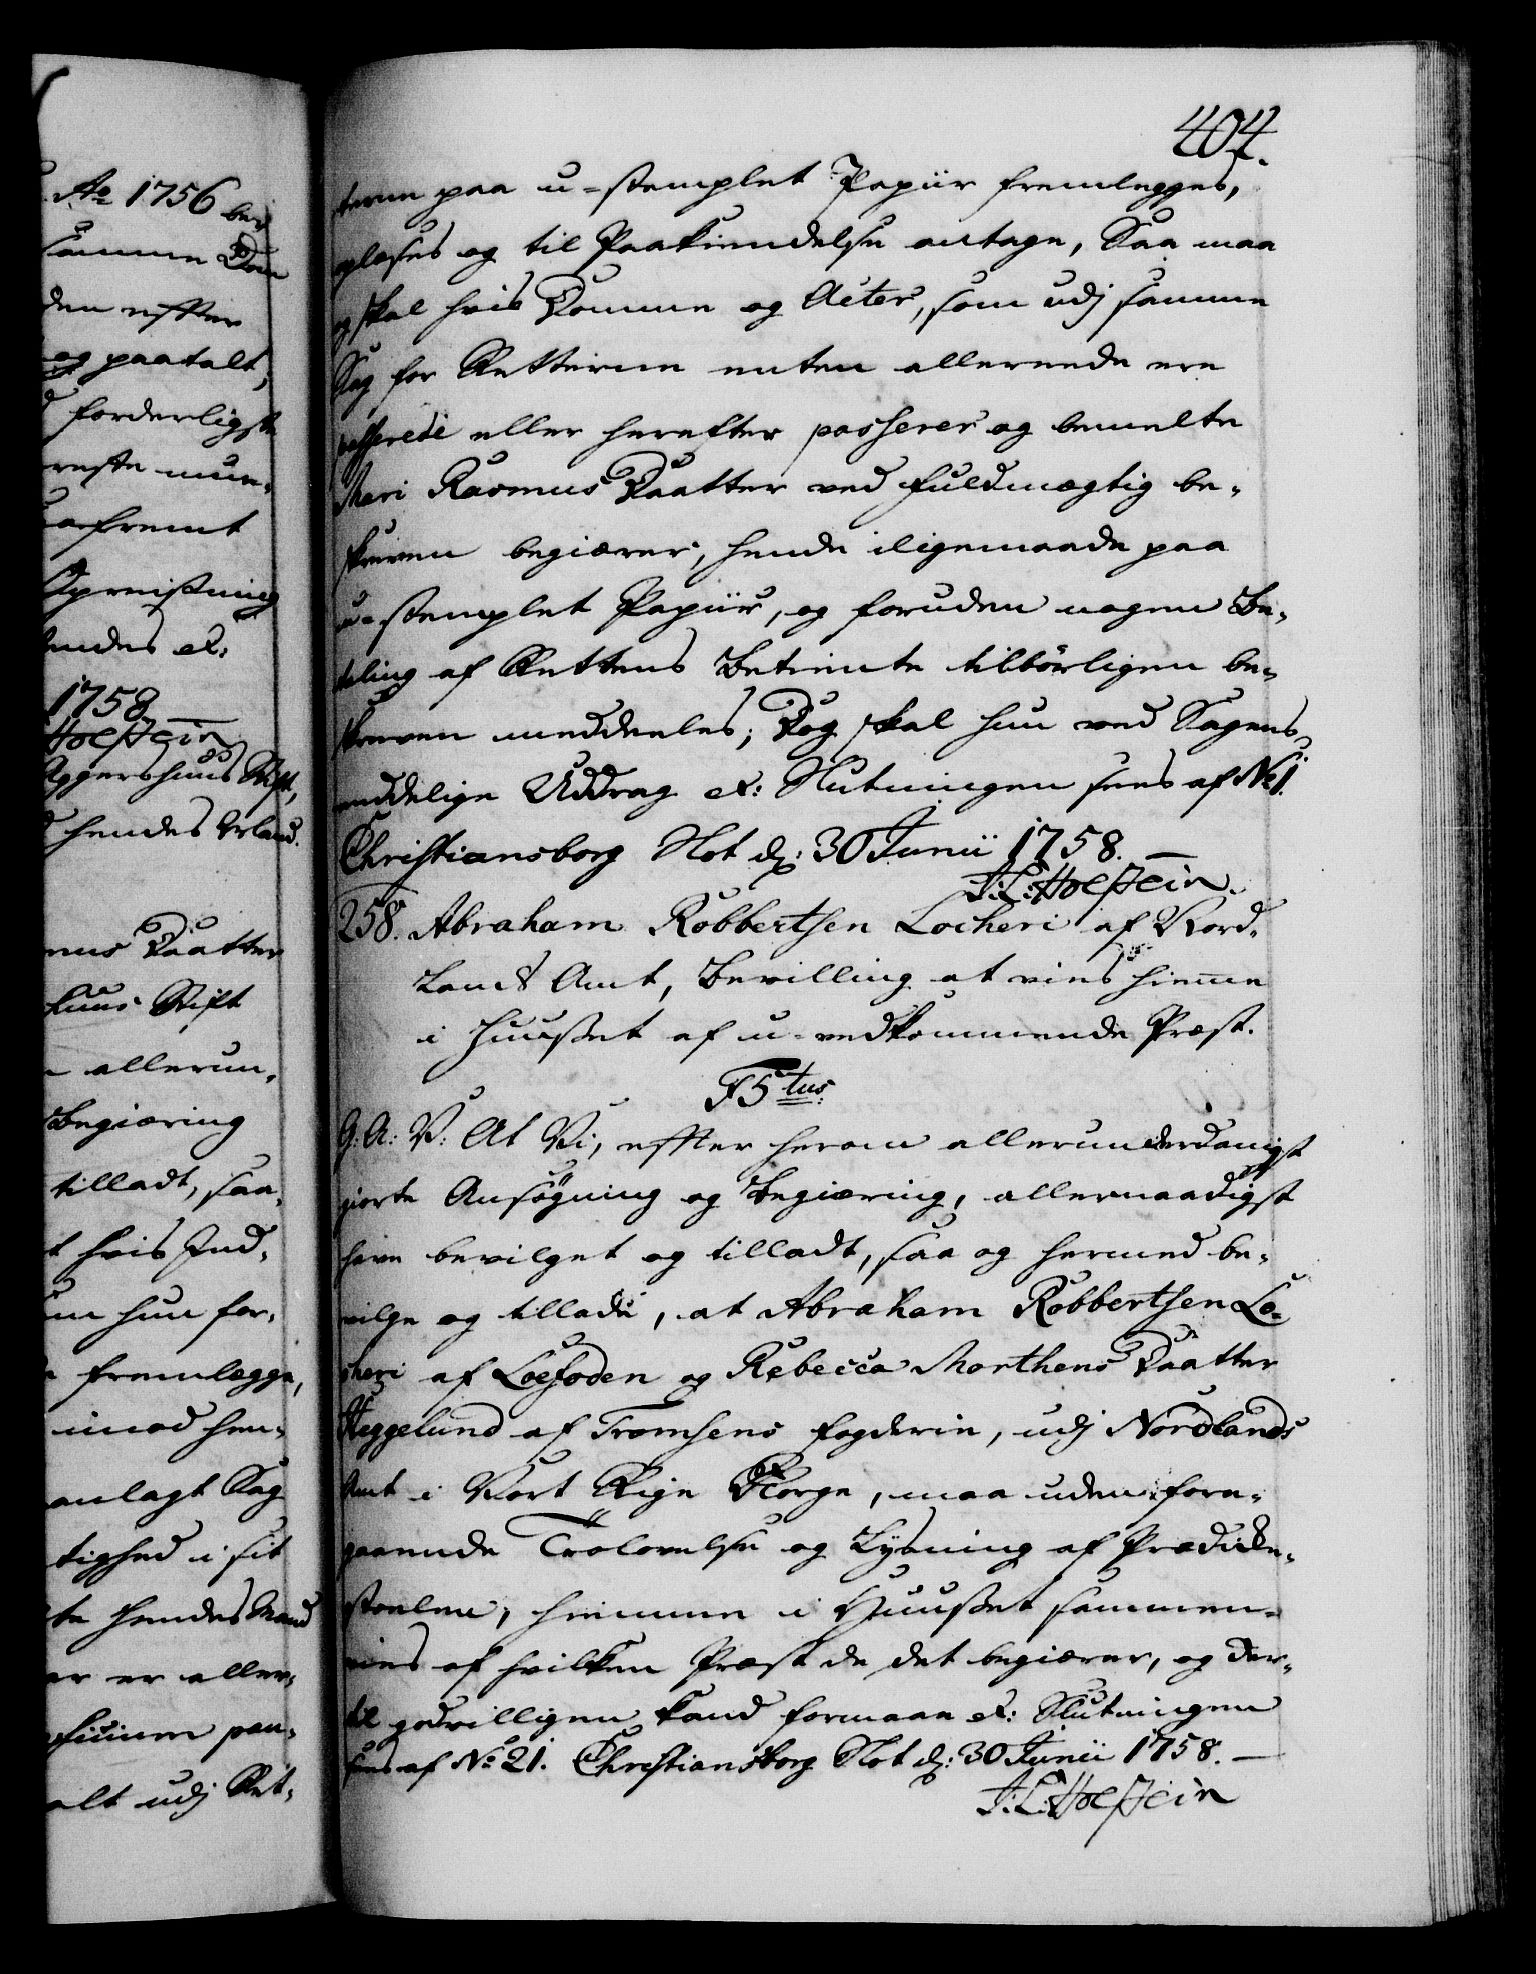 Ao 1756 ber
samme Dom
den efter
og paatalt,
forderligste
reste mun-
saafremt
Opreisning
sendes etc:
1758
Holstein
Aggershuus Stift,
hendes Mand.
mus Daatter
huus Stift
allerun-
Begiæring
tilladt, saa-
hvis Ind-
hun for-
fremlegge,
imod hen-
anlagt Sag
tighed i sit
te hendes Mand
er er aller-
paa-
alt udj Ret-
404.
terne paa u-stemplet Papiir fremlegges,
oplæses og til Paakiendelse antage, Saa maa
og skal hvis Domme og Acter, som udj samme
Sag for Retterne enten allereede ere
passerede eller herefter passerer og bemelte
Mari Rasmus Daatter ved fuldmægtig be-
skreven begiærer, hende iligemaade paa
u-stemplet Papiir, og foruden nogen Be-
taling af Rettens Betiente tilbørligen be-
skreven meddeeles; Dog skal hun ved Sagens
endelige Uddrag etc: Slutningen sees af No 1.
Christiansborg Slot d: 30 Junii 1758.
J: L: Holstein.
258. Abraham Robbertsen Locheri af Nord-
Lands Amt, Bevilling at vies hiemme
i Huuset af u-vedkommende Præst.
F5tus
G: A: V: At Vi, efter herom allerunderdanigst
giorte Ansøgning og Begiæring, allernaadigst
have bevilget og tilladt, saa og hermed be-
vilge og tillade, at Abraham Robbertsen Lo-
cheri af Loefoden og Rebecca Morthens Daatter
Heggelund af Tromsens fogderie, udj Nordlands
Amt i Vort Rige Norge, maa uden fore-
gaaende Troelovelse og Lysning af Prædicke-
stoelene, hiemme i Huuset sammen-
vies af hvilken Præst de det begiærer, og der-
til godvilligen kand formaae etc: Slutningen
sees af No 21. Christiansborg Slot d: 30 Junii 1758.
J: L: Holstein